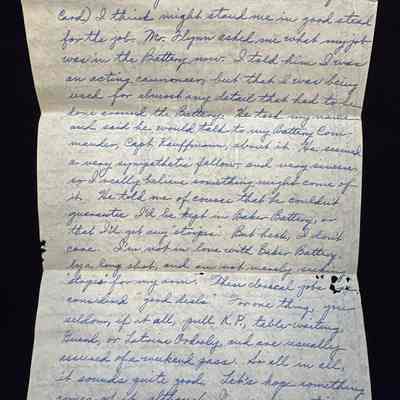 Card) I think might stand me in good stead
for the job. Mr. Flynn asked me what my job
was in the Battery now. I told him I was
an acting cannoneer, but that I was being
used for almost any detail that had to be
done around the Battery. He took my name
and said he would talk to my Battery Com-
mander, Capt. Kauffmann, about it. He seemed
a very sympathetic fellow, and very sincere,
so I really believe something might come of
it. He told me of course that he couldn't
guarantee I'd be kept in Baker Battery, or
that I'd get any 'stripes'. But heck, I don't
care. I'm not in love with Baker Battery
by a long shot, and am not merely seeking
'stripes' for my arm. These clerical jobs are
considered "good deals." For one thing, you
seldom, if at all, pull K.P., table-waiting
Guard, or Latrine Orderly, and are usually
assured of a weekend pass. So all in all,
it sounds quite good. Let's hope something
comes of it, although